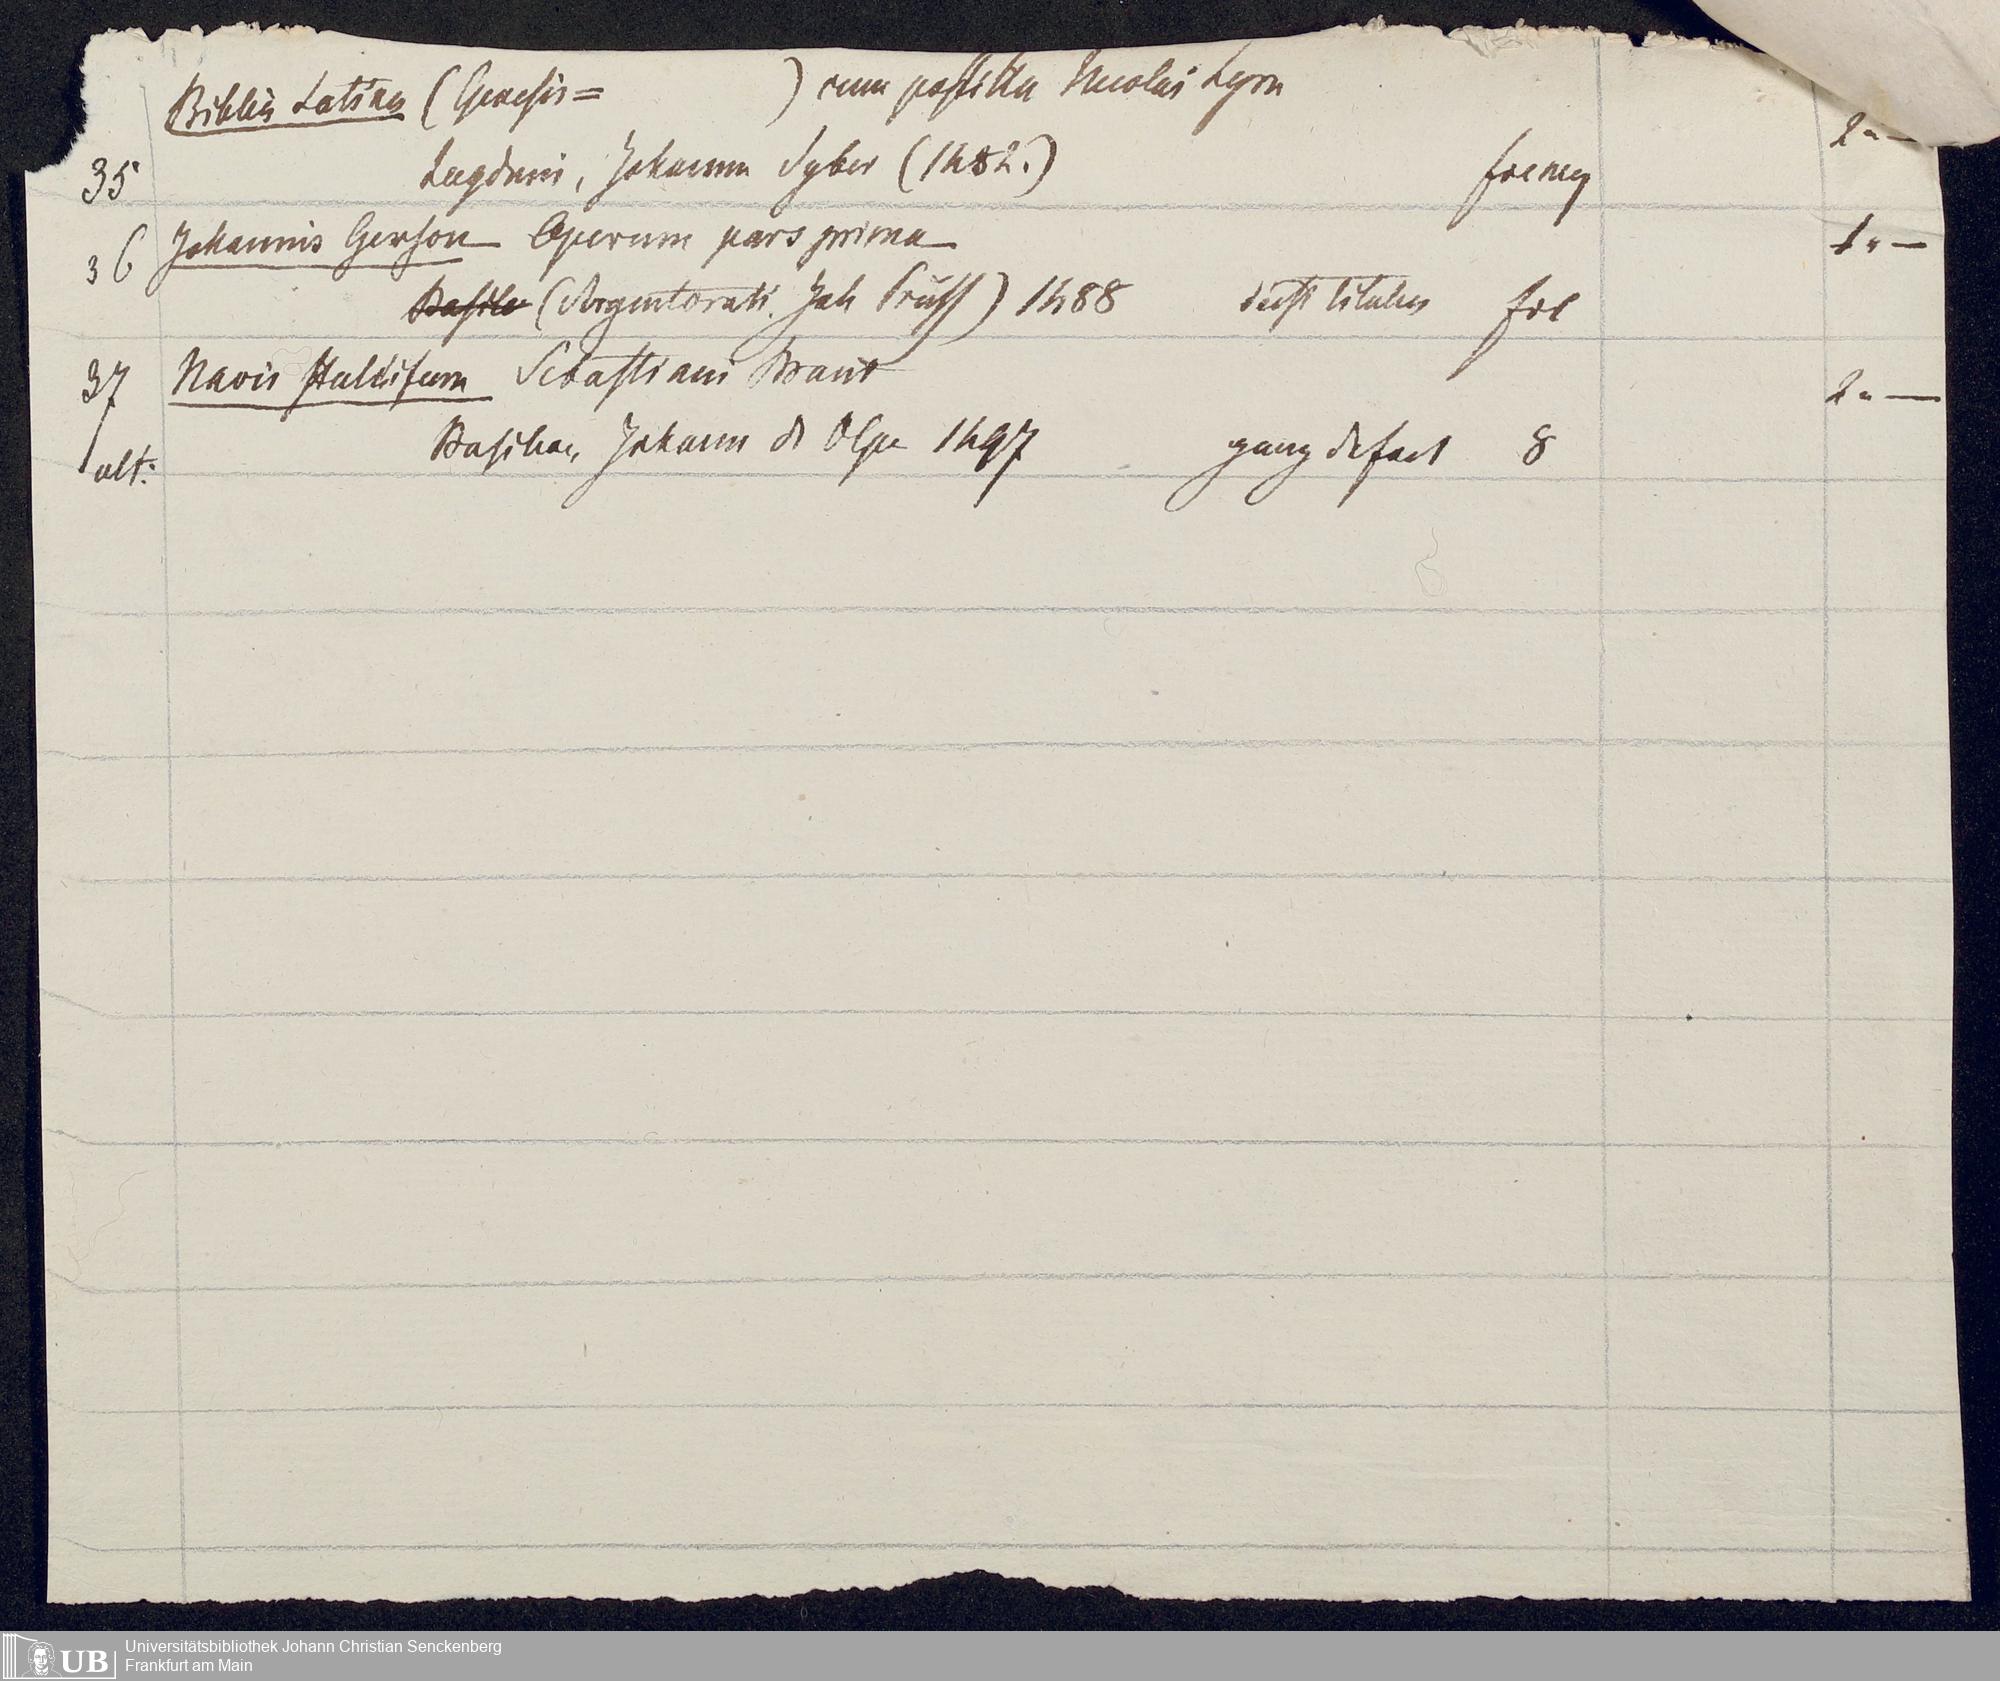 Biblia Latina (Genesis= ) cum postilla Nicolai Lyra 2 " —
35 Lugduni, Johann Syber (1482.) fol
36 Johannis Gerson Operum pars prima 1 " —
Basile (Argentorati. Joh Prüss) 1488 deest titulus fol
37 Navis Stultifera Sebastiani Brant 2 " —
ult: Basileae, Johann de Olpe 1497 ganz defect 8
UB Universitätsbibliothek Johann Christian Senckenberg
Frankfurt am Main